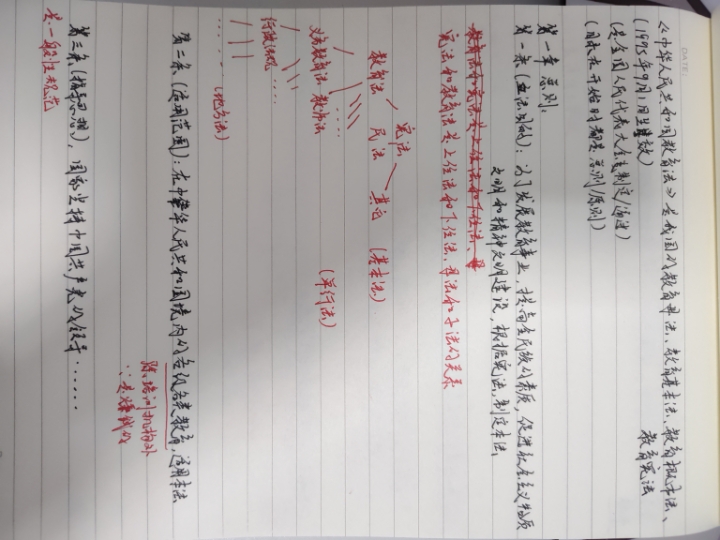 DATE:
《中华人民共和国教育法》是我国的教育母法、教育基本法、教育根本法、
教育宪法
(1995年9月1日生效)
(是全国人民代表大会制定/通过)
(国家在开始时都是总则/原则)
第一章 总则.
第一条(立法目的):为了发展教育事业,提高全民族的素质,促进社会主义物质
文明和精神文明建设,根据宪法,制定本法.
教育法和宪法是上位法和下位法、母
宪法和教育法是上位法和下位法,母法和子法的关系
宪法
教育法 民法 其它 (基本法)
义务教育法 教师法 (单行法)
......
行政法规 ....
...... (地方法)
第二条(适用范围):在中华人民共和国境内的各级各类教育,适用本法
除:培训机构外
∵是赚钱的
第三条(指导思想),国家坚持中国共产党的领导......
是一般性规范